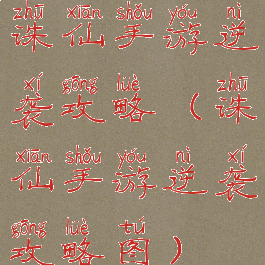 zhū xiān shǒu yóu nì
诛仙手游逆
xí gōng lüè zhū
袭攻略（诛
xiān shǒu yóu nì xí
仙手游逆袭
gōng lüè tú
攻略图）